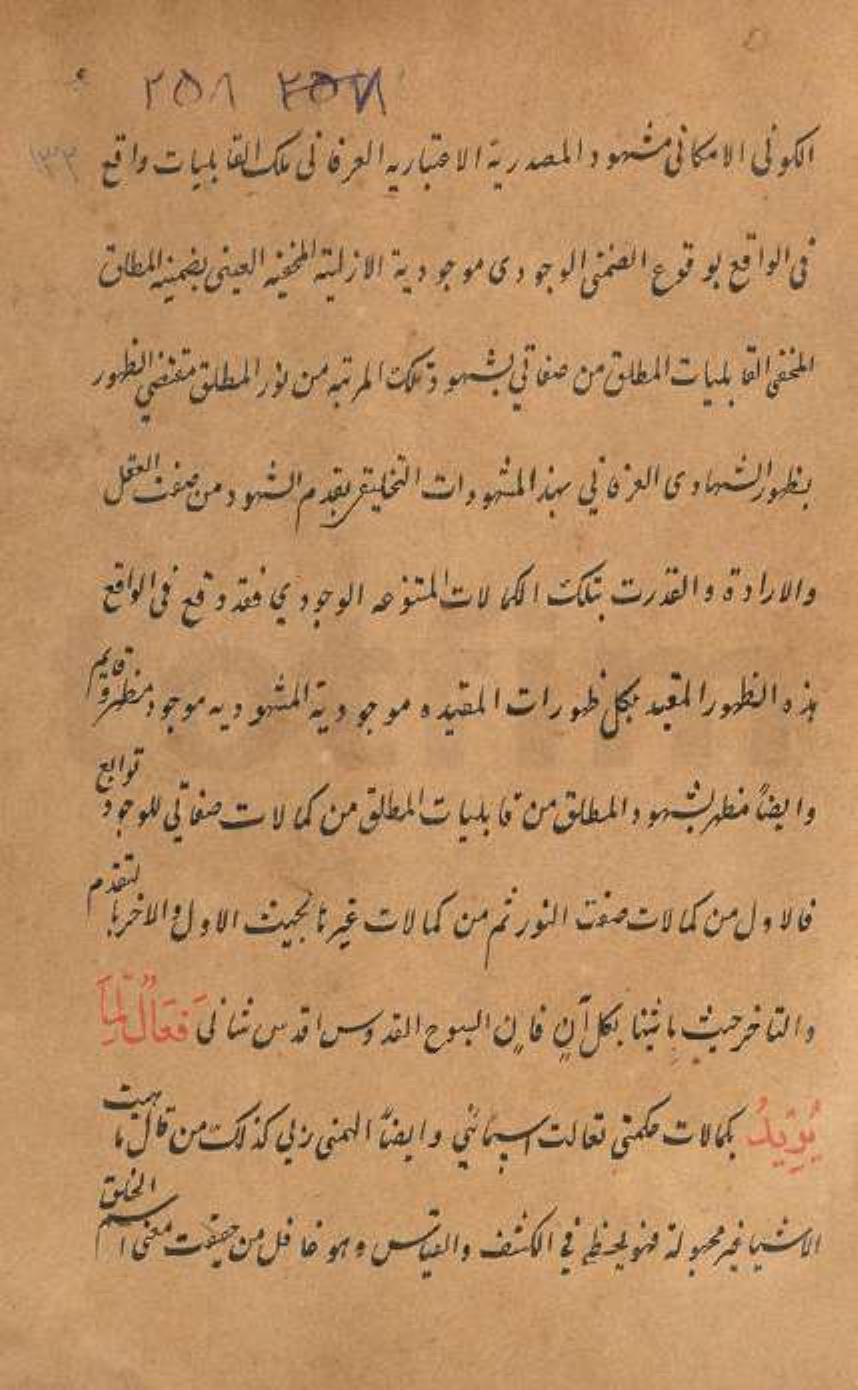 ٢٥٨ ٢٥٧٨
١٣٢
الكونى الامكانى مشهود المصدرية الاعتباريه العرفانى تلك القابليات واقع
فى الواقع بوقوع الضمنى الوجودى موجودية الازلية المخفيه العينى بضمنيه المطلق
المخفى القابليات المطلق من صفاتي بشهود تلك المرتبه من نور المطلق مقتضى الظهور
بظهور الشهادى العرفاني بهذ المشهودات التخليقى بقدم الشهود من صفت العقل
والارادة والقدرت بتلك الكمالات المتنوعه الوجودي فقد وقع فى الواقع
هذه الظهور المقيد بكل ظهورات المقيده موجودية المشهوديه موجود مظهرة قايم
وايضاً مظهر بشهود المطلق من قابليات المطلق من كمالات صفاتي للوجود توابع
فالاول من كمالات صفت النور ثم من كمالات غيرنا بحيث الاول والاخر با لتقدم
والتاخر حيث بانيتنا بكل آنٍ فان السبوح القدوس اقدس شانى فَعّالٌ لِمَا
يُرِيدُ بكمالات حكمتي تعالت اسمائي وايضاً الهمنى ربي كذلك من قال ما هيت
الاشيا غير مجعولة فهو يخطئ في الكشف والقياس وهو غافل من حقيقت معنى اسم الخلق